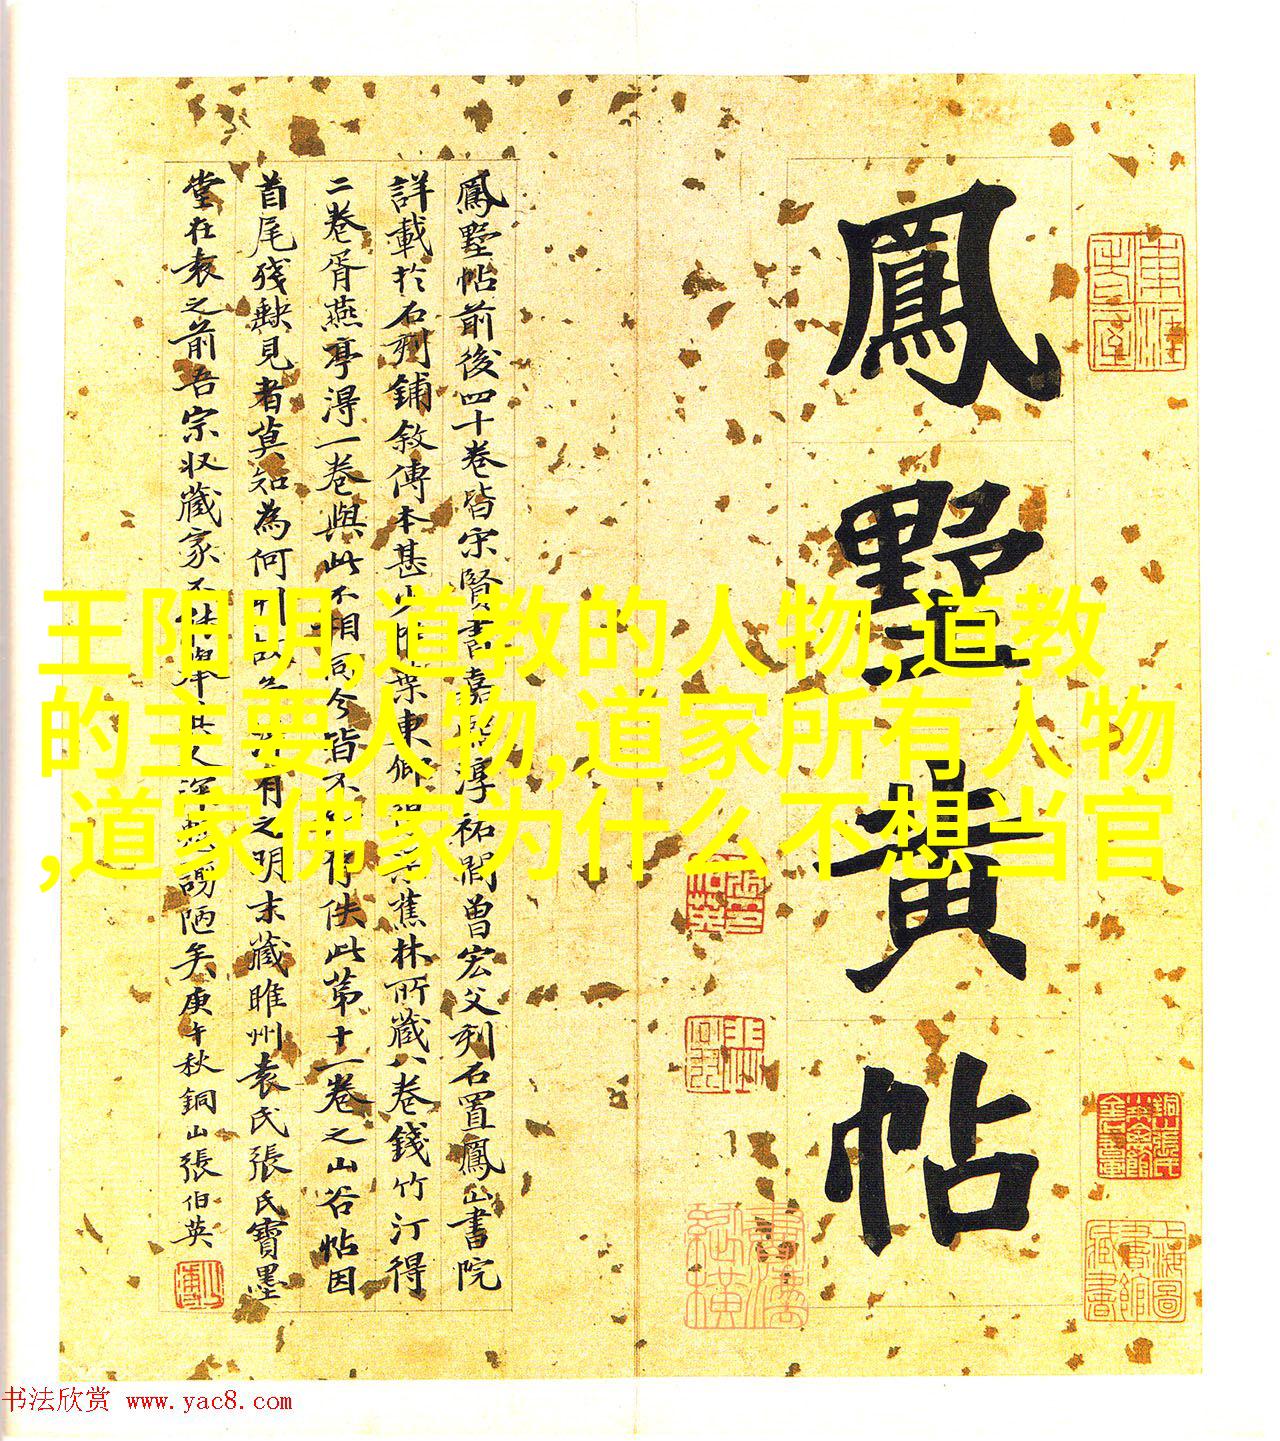 鳳墅黃帖
鳳墅帖前後四十卷皆宋賢書嘉熙淳祐閒曾宏父刋石置鳳山書院
詳載於石刻鋪敘傳本甚少葉東卿蕉林所藏八卷錢竹汀得
二卷胥燕亭淂一卷與此不相同今皆不佚此第十一卷之山谷帖因
首尾殘缺見者莫知為何刋有之明末藏睢州袁氏張氏寶墨
堂在袁之前吾宗収藏家不謭陋矣庚午秋銅山張伯英
王阳明,道教的人物,道教
的主要人物,道家所有人物
,道家佛家为什么不想当官
上海圖書館藏書
书法欣赏 www.yac8.com